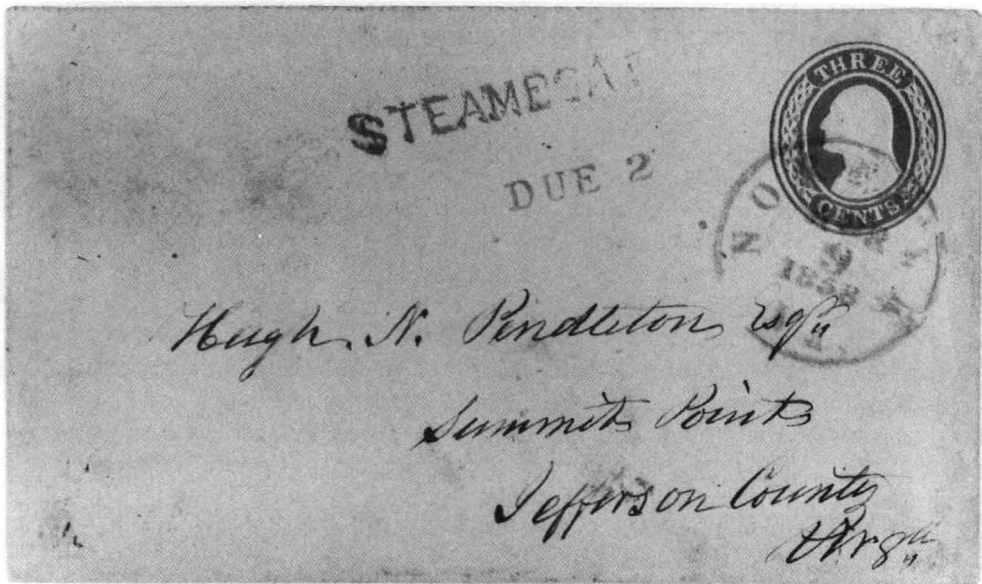 STEAMBOAT
DUE 2
THREE
CENTS
NO
9
1858
Hugh. N. Pendleton Esqr
Summit Point
Jefferson County
Virga